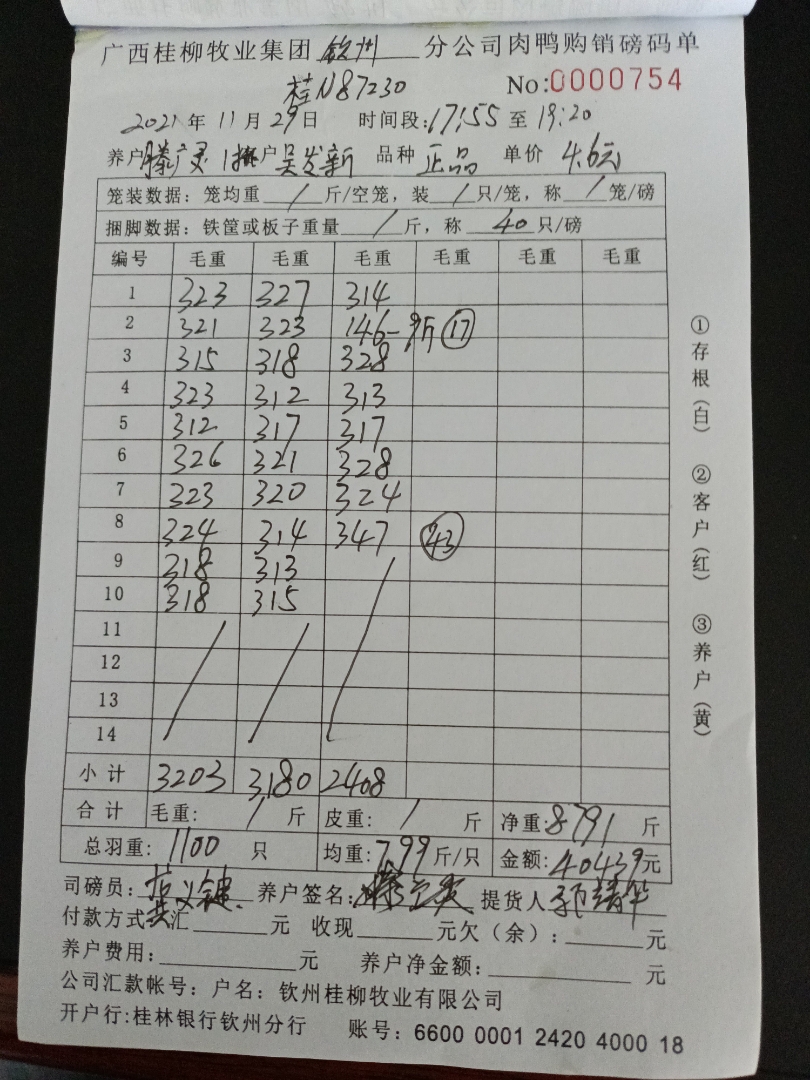 广西桂柳牧业集团 钦州 分公司肉鸭购销磅码单
桂N87230 No:0000754
2021年11月29日 时间段:17:55至19:20
养户 滕广灵 户 吴发新 品种 正品 单价 4.6元
笼装数据：笼均重 / 斤/空笼，装 / 只/笼，称 / 笼/磅
捆脚数据：铁筐或板子重量 / 斤，称 40 只/磅
编号 毛重 毛重 毛重 毛重 毛重 毛重
1 323 327 314
2 321 323 146- 17
3 315 318 328
4 323 312 313
5 312 317 317
6 326 321 328
7 323 320 324
8 324 314 347 43
9 318 313
10 318 315
11
12
13
14
小计 3203 3180 2408
合计 毛重： / 斤 皮重： / 斤 净重:8791 斤
总羽重：1100 只 均重:7.99斤/只 金额:40439元
司磅员： 养户签名: 提货人
付款方式: 汇 元 收现 元欠（余）： 元
养户费用： 元 养户净金额： 元
公司汇款帐号：户名：钦州桂柳牧业有限公司
开户行:桂林银行钦州分行 账号：6600 0001 2420 4000 18
①存根（白） ②客户（红） ③养户（黄）